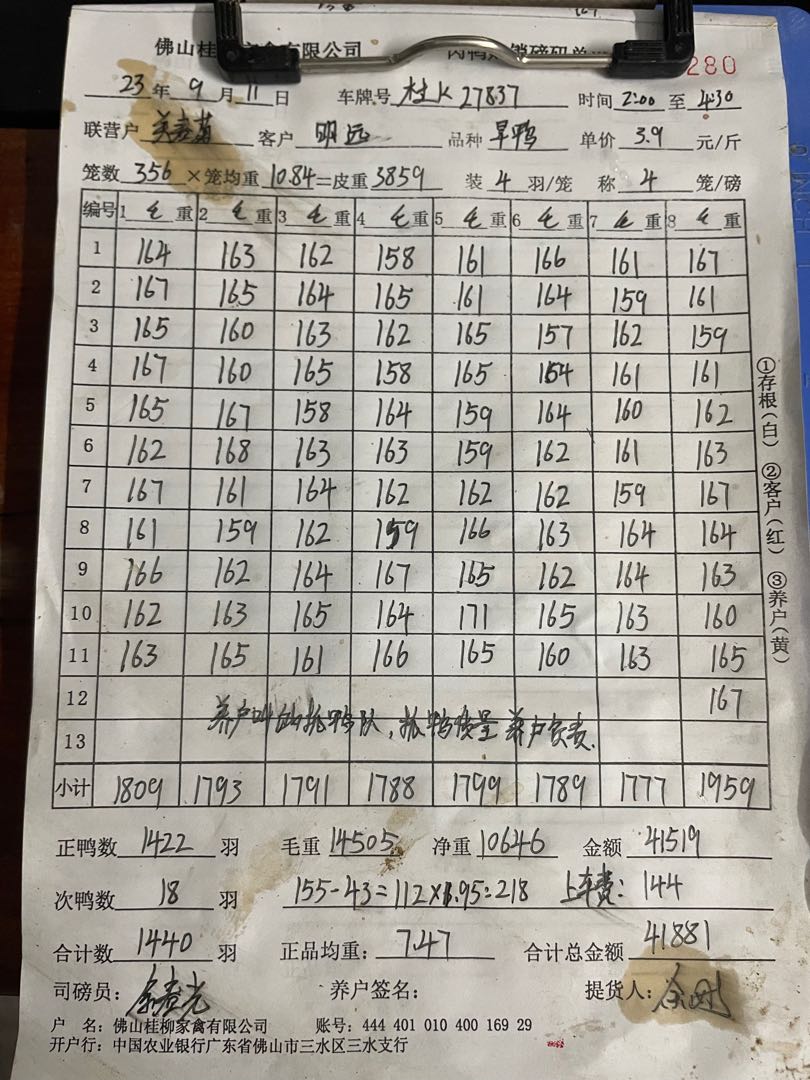 佛山桂 家禽有限公司 肉鸭 销磅码单 280
23年9月11日 车牌号 桂K27837 时间 2:00 至 4:30
联营户 客户 明远 品种 旱鸭 单价 3.9 元/斤
笼数 356 ×笼均重 10.84=皮重 3859 装 4 羽/笼 称 4 笼/磅
编号 1 毛 重 2 毛 重 3 毛 重 4 毛 重 5 毛 重 6 毛 重 7 毛 重 8 毛 重
1 164 163 162 158 161 166 161 167
2 167 165 164 165 161 164 159 161
3 165 160 163 162 165 157 162 159
4 167 160 165 158 165 154 161 161
5 165 167 158 164 159 164 160 162
6 162 168 163 163 159 162 161 163
7 167 161 164 162 162 162 159 167
8 161 159 162 159 166 163 164 164
9 166 162 164 167 165 162 164 163
10 162 163 165 164 171 165 163 160
11 163 165 161 166 165 160 163 165
12 167
养户叫的抓鸭队，抓鸭质量养户负责.
13
小计 1809 1793 1791 1788 1799 1789 1777 1959
正鸭数 1422 羽 毛重 14505 净重 10646 金额 41519
次鸭数 18 羽 155-43=112×1.95=218 上车费：144
合计数 1440 羽 正品均重：7.47 合计总金额 41881
司磅员： 养户签名： 提货人：
户 名：佛山桂柳家禽有限公司 账号：444 401 010 400 169 29
开户行：中国农业银行广东省佛山市三水区三水支行
①存根(白) ②客户(红) ③养户(黄)